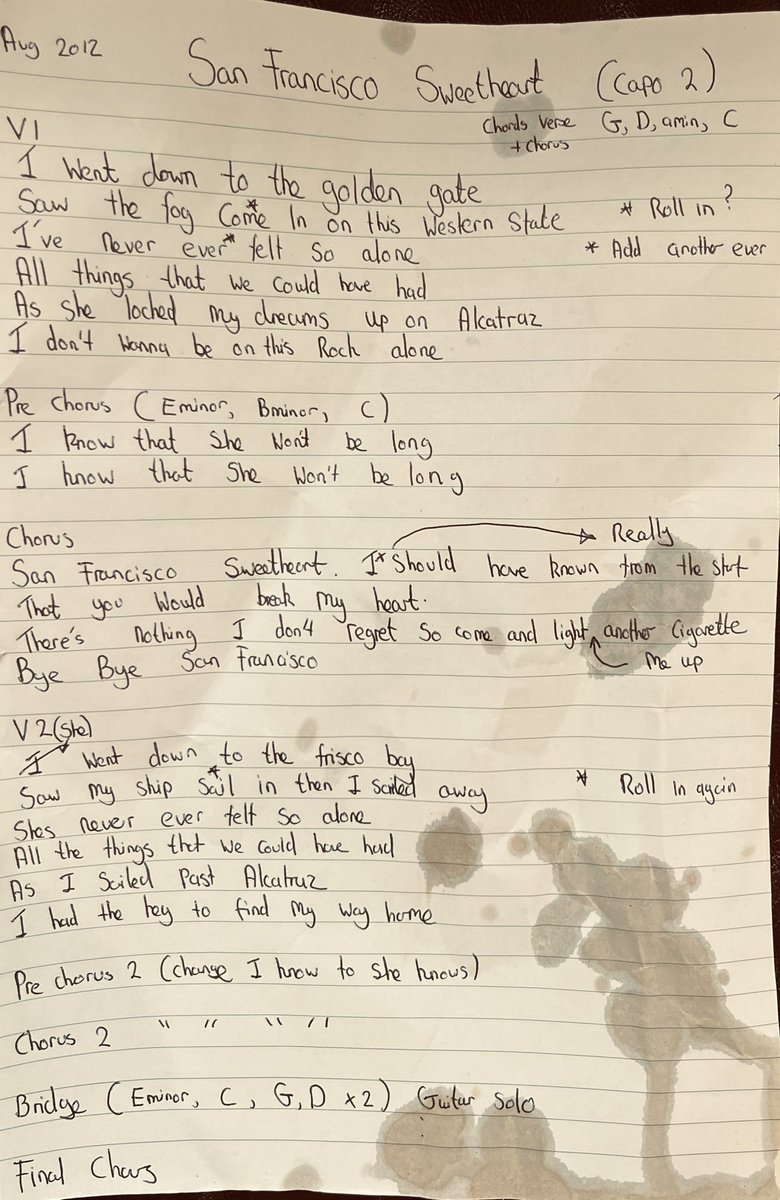 Aug 2012
San Francisco Sweetheart (Capo 2)
Chords Verse G, D, amin, C
+ Chorus
V1
I Went down to the golden gate
Saw the fog Come* In on this Western State * Roll in?
I've never ever* felt so alone * Add another ever
All things that we could have had
As she locked my dreams up on Alcatraz
I don't Wanna be on this Rock alone
Pre Chorus (Eminor, Bminor, C)
I know that She Won't be long
I know that She Won't be long
Chorus Really
San Francisco Sweetheart. I* Should have known from the start
That you Would break My heart.
There's nothing I don't regret So come and light another Cigarette
Bye Bye San Francisco Me up
V2 (She)
I Went down to the frisco bay
Saw my ship Sail* in then I Sailed away * Roll In again
Shes never ever felt so alone
All the things that we could have had
As I Sailed Past Alcatraz
I had the key to find My Way home
Pre chorus 2 (change I know to She knows)
Chorus 2 " " " "
Bridge (Eminor, C, G, D x2) Guitar Solo
Final Chorus